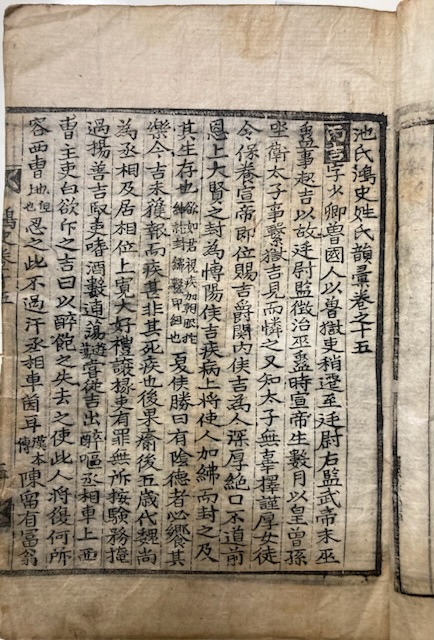 池氏鴻史姓氏韻彙卷之十五
丙吉字少卿魯國人以魯獄吏稍遷至廷尉右監武帝末巫
蠱事起吉以故廷尉監徵治巫蠱時宣帝生數月以皇曾孫
坐衛太子事繫獄吉見而憐之又知太子無辜擇謹厚女徒
令保養宣帝即位賜吉爵關內侯吉為人深厚絕口不道前
恩上大賢之封為博陽侯吉疾病上將使人加紼而封之及
其生存也欲如君視疾加朝服拖紳就封紼繫印組也夏侯勝曰有陰德者必饗其
樂今吉未獲報而疾甚非其死疾也後果瘉後五歲代魏尚
為丞相及居相位上寬大好禮讓掾吏有罪無所按驗務掩
過揚善吉馭吏嗜酒數逋蕩嘗從吉出醉嘔丞相車上西
曹主吏白欲斥之吉曰以醉飽之失去之使此人將復何所
容西曹地但也忍之此不過汙丞相車茵耳漢本傳陳留有富翁
鴻史卷十五